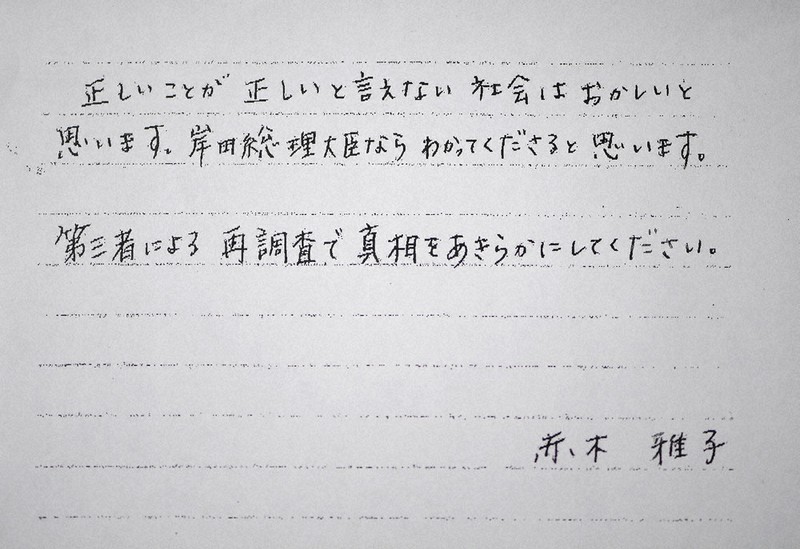 正しいことが 正しいと言えない 社会は おかしいと
思います。岸田総理大臣なら わかってくださると 思います。
第三者による 再調査で 真相をあきらかにしてください。
赤木 雅子